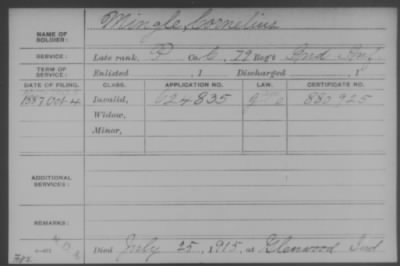 NAME OF SOLDIER: Mingle, Cornelius
SERVICE: Late rank, P Co. C, 79 Reg't Ind Inf.
TERM OF SERVICE: Enlisted , 1 Discharged , 1
DATE OF FILING. CLASS. APPLICATION NO. LAW. CERTIFICATE NO.
1887 Oct 4 Invalid, 624835 880925
Widow,
Minor,
ADDITIONAL SERVICES:
REMARKS:
Died July 25, 1915, at Glenwood Ind